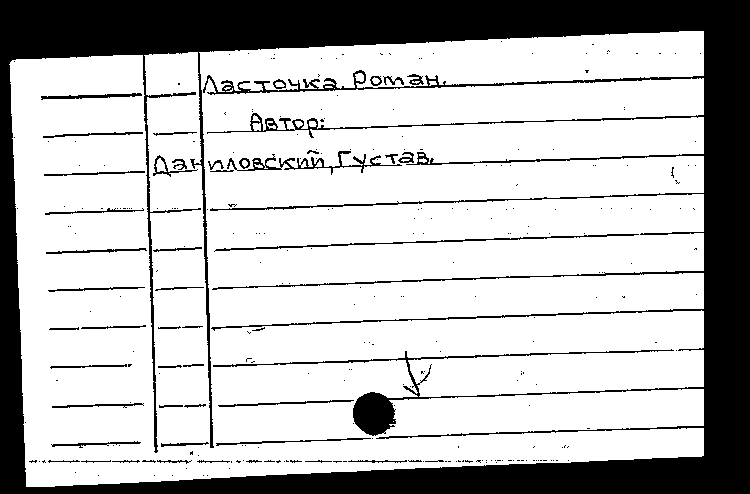 Ласточка. Роман.
Автор:
Даниловский, Густав.